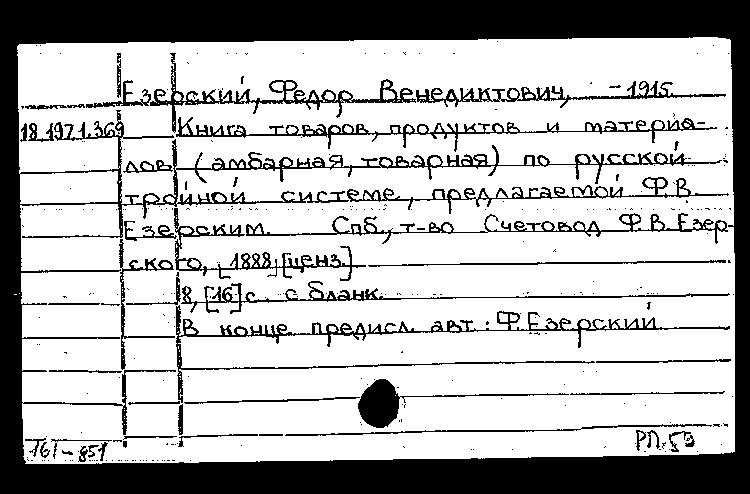 Езерский, Федор Венедиктович, -1915.
18.197.1.369 Книга товаров, продуктов и материа-
лов (амбарная, товарная) по русской
тройной системе, предлагаемой Ф.В.
Езерским. Спб., т-во Счетовод Ф.В. Езер-
ского, [1888] [ценз.]
8, [16] с. с бланк.
В конце предисл. авт.: Ф.Езерский
161-851 РП.53